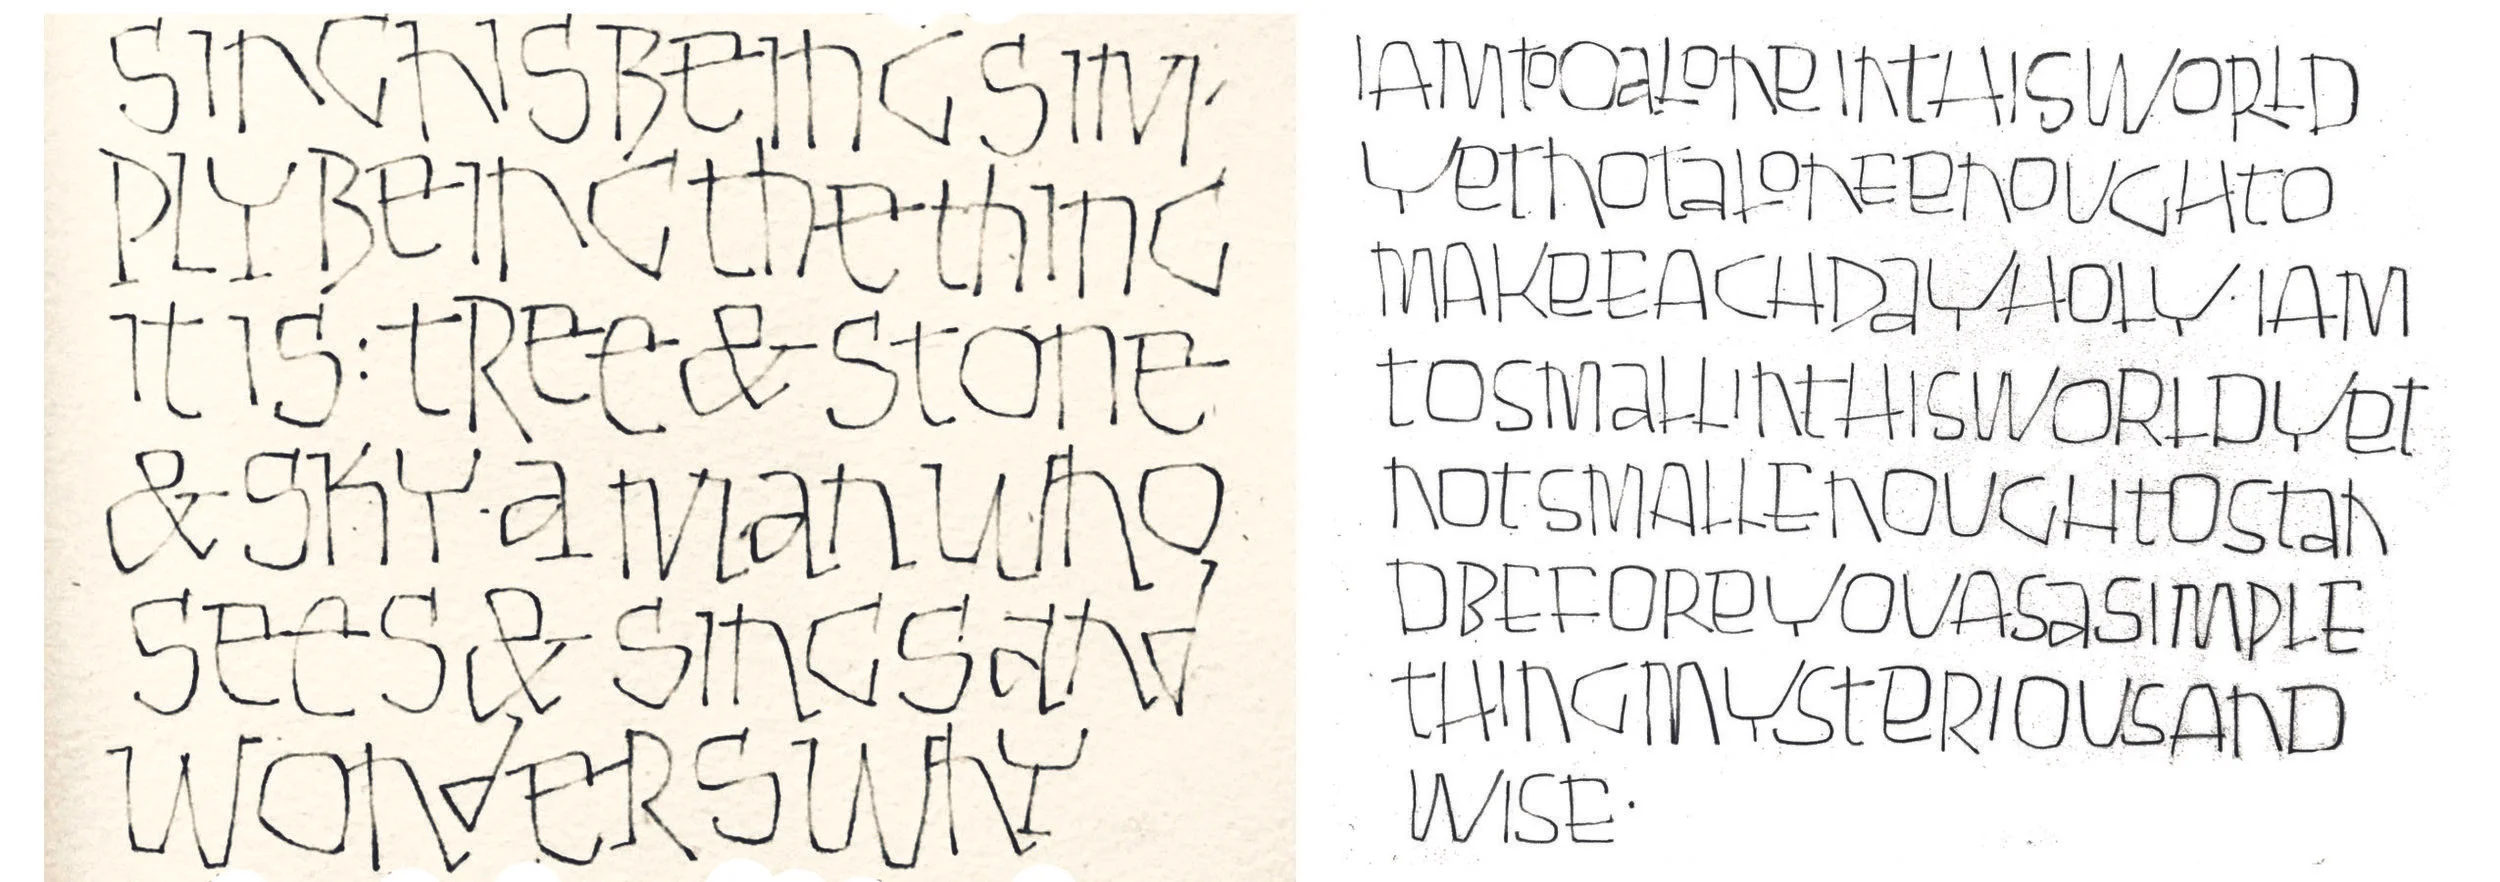 SING HIS BEING SIM-
PLY BEING THE THING
IT IS: TREE & STONE
& SKY · A MAN WHO
SEES & SINGS AND
WONDERS WHY
I AM TOO ALONE IN THIS WORLD
YET NOT ALONE ENOUGH TO
MAKE EACH DAY HOLY · I AM
TO SMALL IN THIS WORLD YET
NOT SMALL ENOUGH TO STAN
D BEFORE YOU AS A SIMPLE
THING MYSTERIOUS AND
WISE ·